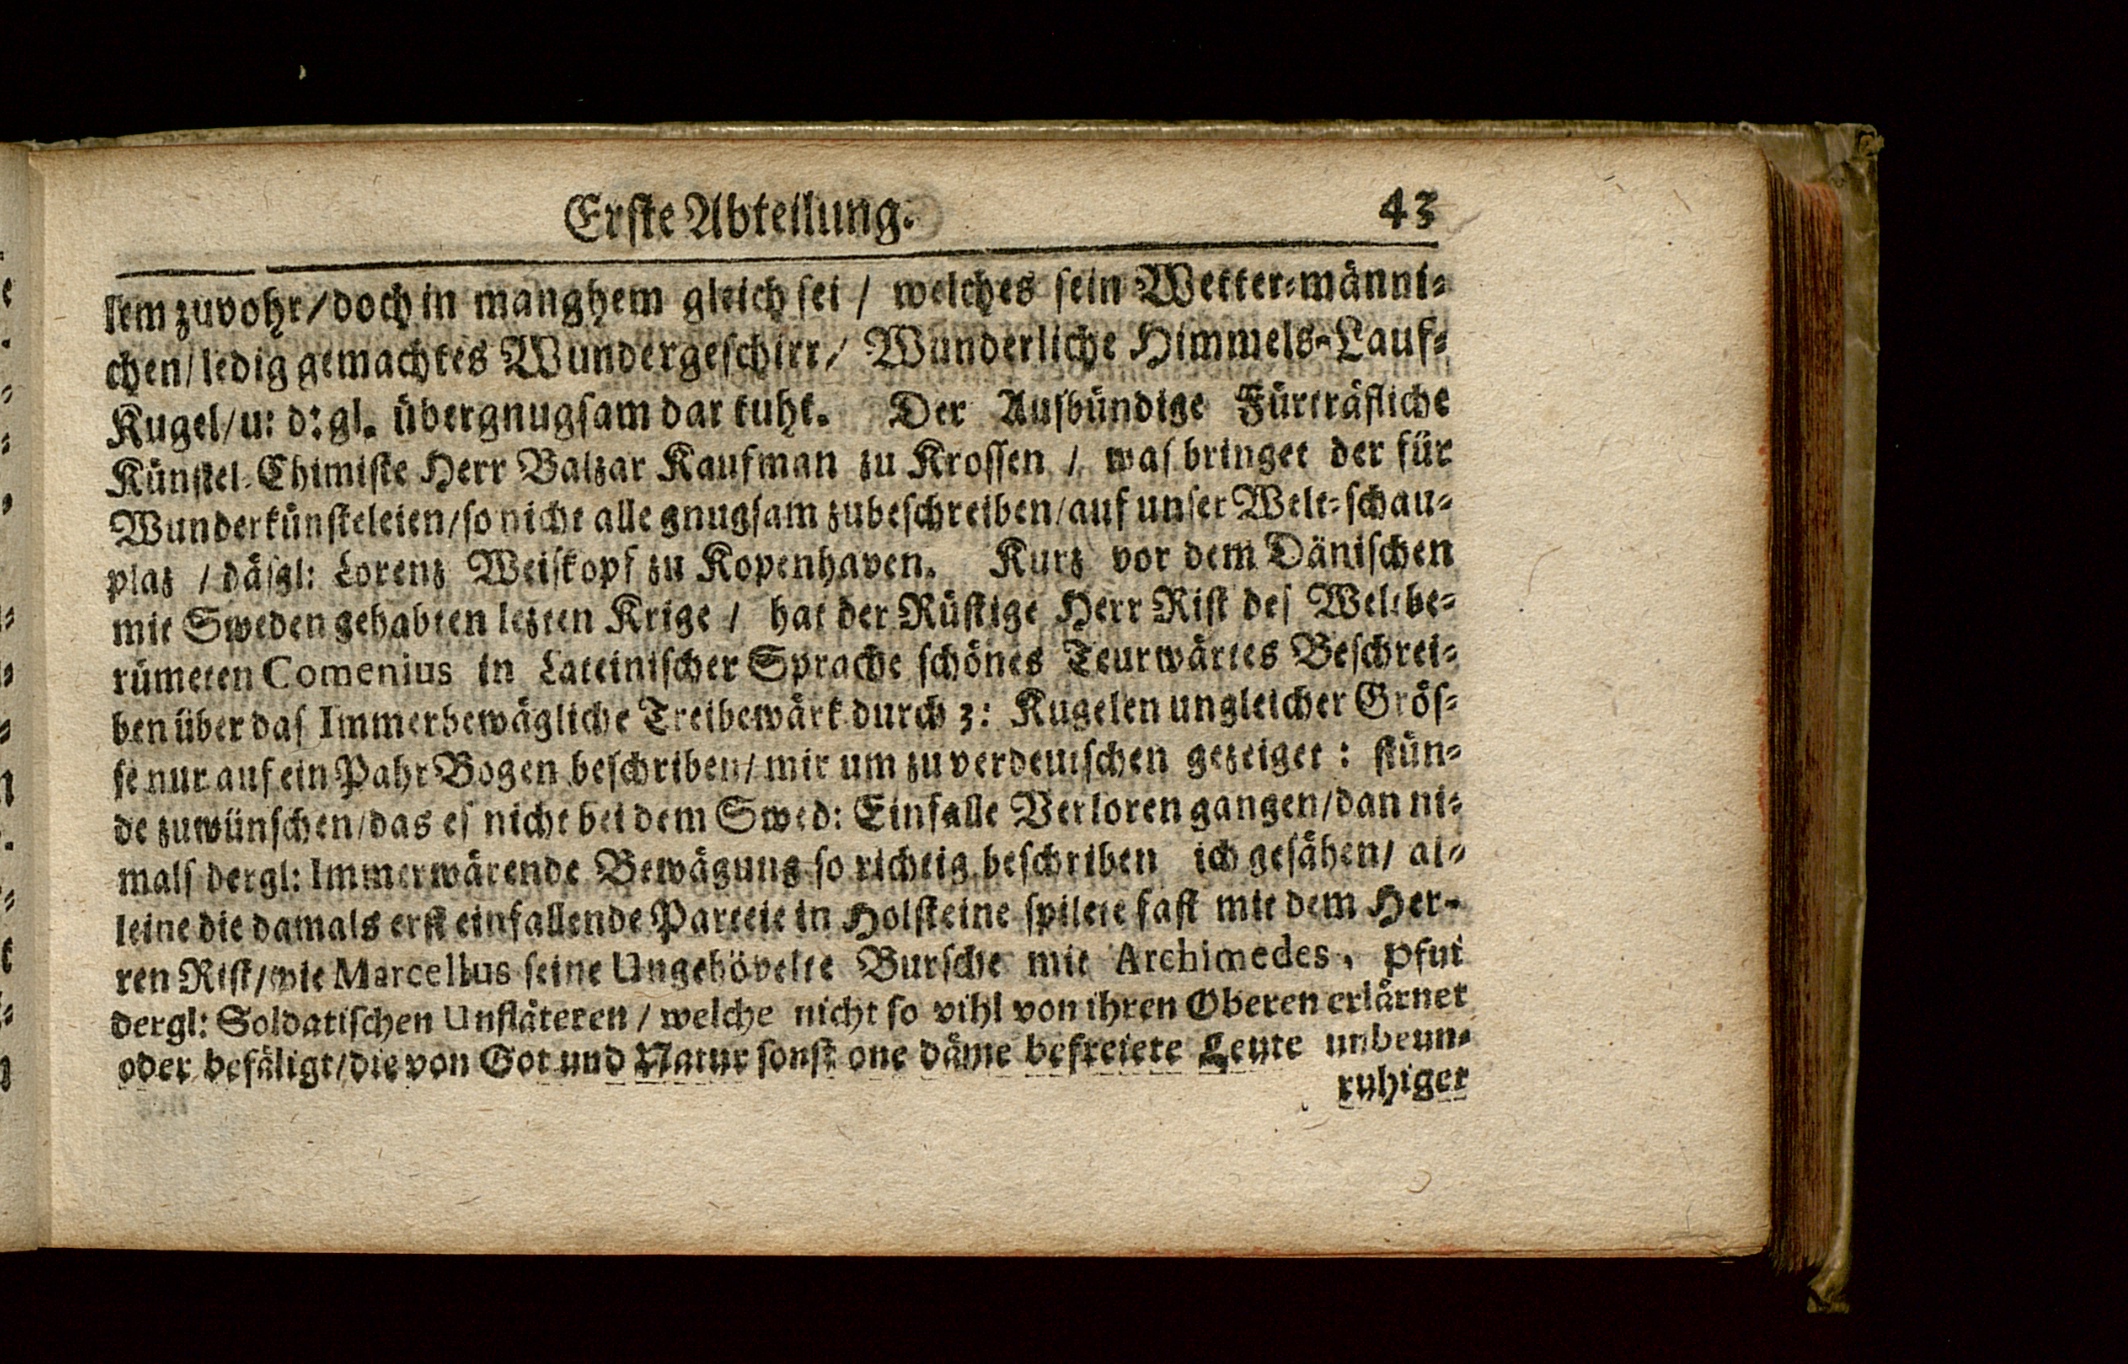 Erste Abteilung. 43
sem zuvohr/doch in manghem gleich sei / welches sein Wetter-männi-
chen/ledig gemachtes Wundergeschirr/ Wunderliche Himmels-Lauf-
Kugel/u: d:gl. übergnugsam dar tuht. Der Ausbündige Fürträfliche
Künstel-Chimiste Herr Balzar Kaufman zu Krossen / was bringet der für
Wunderkünsteleien/so nicht alle gnugsam zubeschreiben/auf unser Welt-schau-
plaz / däsgl: Lorenz Weiskopf zu Kopenhaven. Kurz vor dem Dänischen
mit Sweden gehabten lezten Krige / hat der Rüstige Herr Rist des Weltbe-
rümeten Comenius in Lateinischer Sprache schönes Teurwärtes Beschrei-
ben über das Immerbewägliche Treibewärk durch 3: Kugelen ungleicher Grös-
se nur auf ein Pahr Bogen beschriben/mir um zu verdeutschen gezeiget : stün-
de zuwünschen/das es nicht bei dem Swed: Einfalle Verloren gangen/dan ni-
mals dergl: Immerwärende Bewägung so richtig beschriben ich gesähen/ al-
leine die damals erst einfallende Parteie in Holsteine spilete fast mit dem Her-
ren Rist/wie Marcellus seine Ungehövelte Bursche mit Archimedes, pfui
dergl: Soldatischen Unfläteren / welche nicht so vihl von ihren Oberen erlärnet
oder befäligt/die von Got und Natur sonst one däme befreiete Leute unbeun-
ruhiget